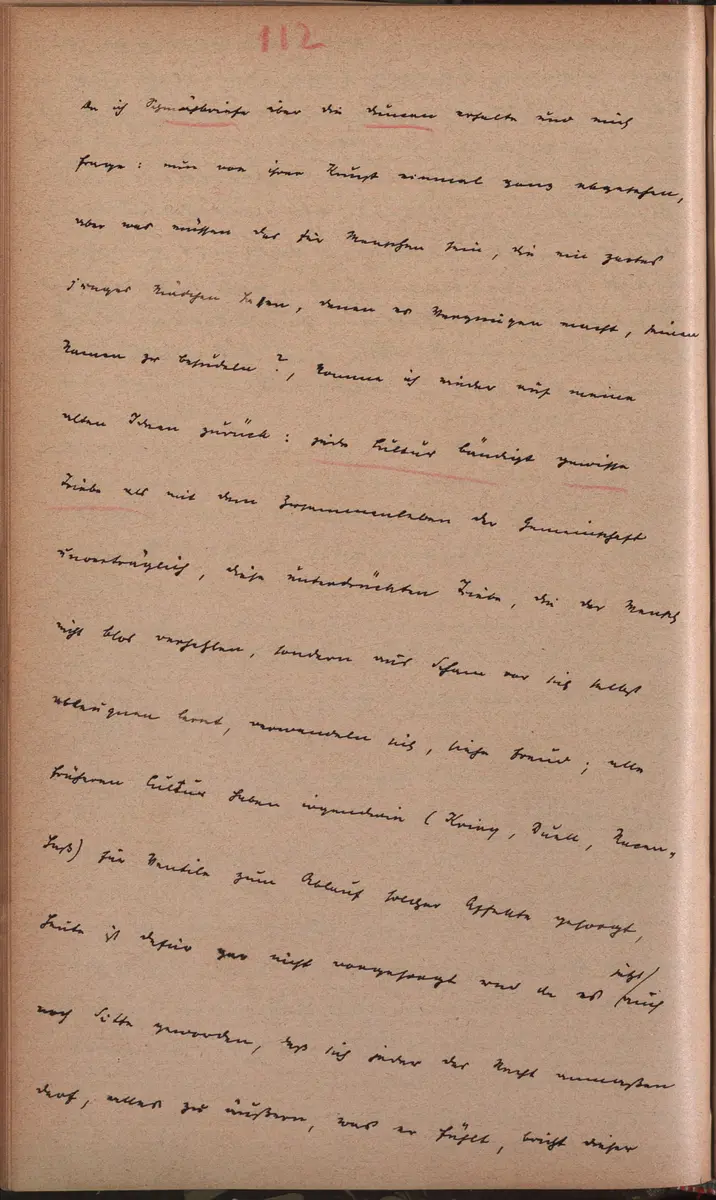 112
Da ich Schmähbriefe über die Duncan erhalte und mich
frage: nun von ihrer Kunst einmal ganz abgesehen,
aber was müssen das für Menschen sein, die ein zartes
junges Mädchen hassen, denen es Vergnügen macht, seinen
Namen zu besudeln?, komme ich wieder auf meine
alten Ideen zurück: jede Cultur bändigt gewisse
Triebe als mit dem Zusammenleben der Gemeinschaft
unverträglich, diese unterdrückten Triebe, die der Mensch
nicht blos verhehlen, sondern aus Scham vor sich selbst
ableugnen lernt, verwandeln sich, siehe Freud; alle
früheren Cultur haben irgendwie (Krieg, Duell, Racen-
haß) für Ventile zum Ablauf solcher Affekte gesorgt,
heute ist dafür gar nicht vorgesorgt und da es jetzt auch
noch Sitte geworden, daß sich jeder das Recht anmaßen
darf, alles zu äußern, was er fühlt, bricht dieser